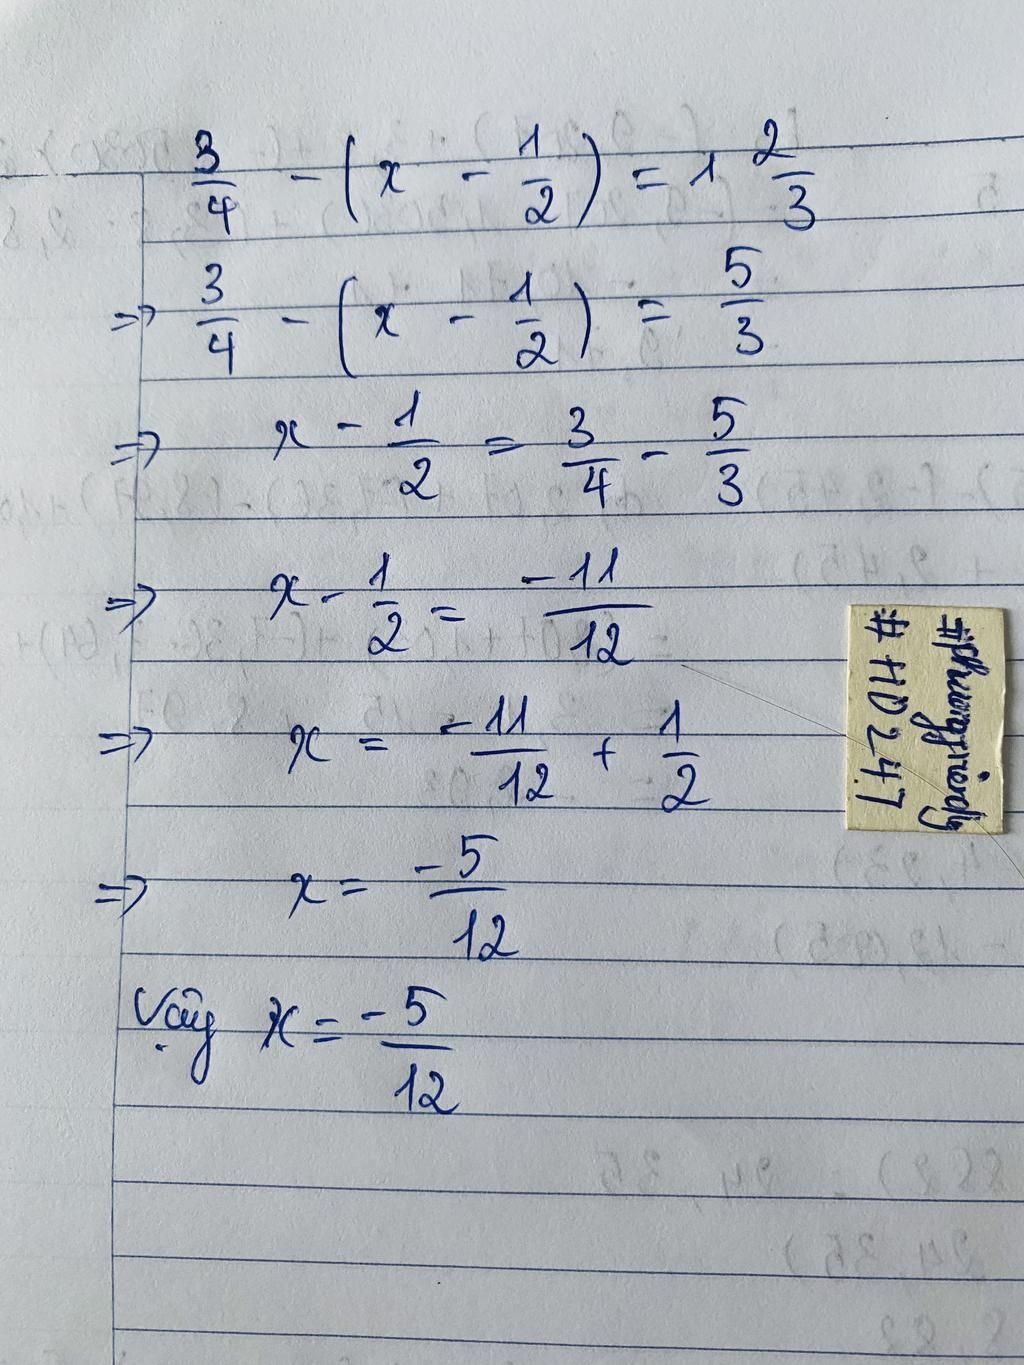 3/4 - (x - 1/2) = 1 2/3
=> 3/4 - (x - 1/2) = 5/3
=> x - 1/2 = 3/4 - 5/3
=> x - 1/2 = -11/12
=> x = -11/12 + 1/2
=> x = -5/12
Vậy x = -5/12
#HD247